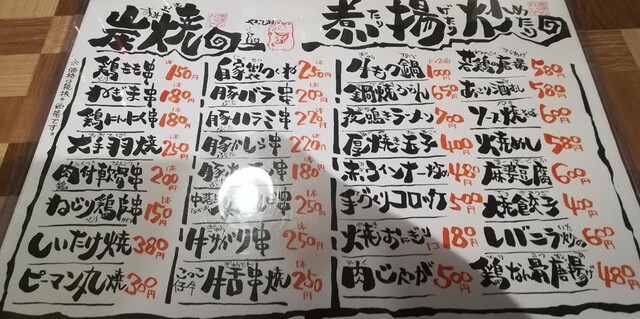 炭焼の
煮たり揚げたり炒めたりの
鶏もも串 一本 150円
ねぎま串 一本 180円
鶏にんにく串 一本 180円
大手羽焼 一本 250円
肉付軟骨串 200円
ねじり鶏皮串 150円
しいたけ焼 380円
ピーマン丸焼 300円
自家製つくね 一本 250円
豚バラ串 200円
豚ハラミ串 220円
豚かしら串 220円
180円
250円
牛サガリ串 250円
牛舌串焼 250円
牛もつ鍋
鍋焼うどん 650円
夜鳴きラーメン 700円
厚焼き玉子 400円
赤ウインナー炒め 480円
手づくりコロッケ 500円
焼きおにぎり 180円
肉じゃが 500円
若鶏の唐揚 580円
あさり酒むし 580円
ソース焼そば 600円
焼めし 580円
麻婆豆腐 600円
焼餃子 400円
レバニラ炒め 600円
鶏なん骨唐揚げ 480円